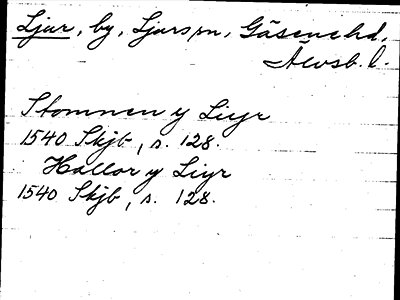 Ljur, by, Ljurs sn, Gäsene hd,
Älvsb. l.
Stomnen y Liyr
1540 Skjb, s. 128.
Hallor y Liyr
1540 Skjb, s. 128.